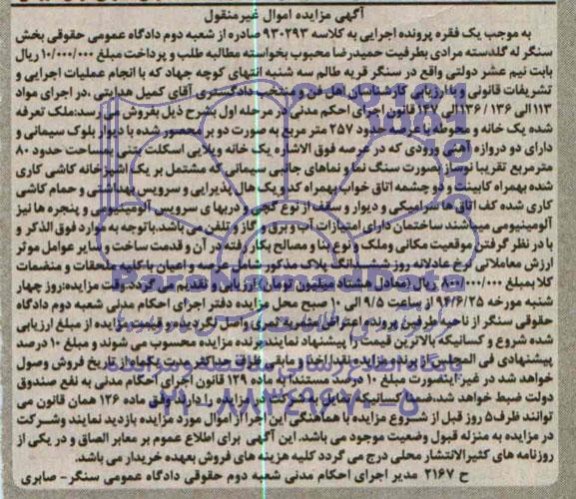 آگهی مزایده اموال غیرمنقول
به موجب یک فقره پرونده اجرایی به کلاسه ۹۳۰۲۹۳ صادره از شعبه دوم دادگاه عمومی حقوقی بخش
سنگر له گلدسته مرادی بطرفیت حمیدرضا محبوب بخواسته مطالبه طلب و پرداخت مبلغ ۱۰/۰۰۰/۰۰۰ ریال
بابت نیم عشر دولتی واقع در سنگر قریه طالم سه شنبه انتهای کوچه جهاد که با انجام عملیات اجرایی و
تشریفات قانونی و با ارزیابی کارشناسان اهل فن و منتخب دادگستری آقای کمیل هدایتی، در اجرای مواد
۱۱۳ الی ۱۳۶ / ۱۳۶ الی ۱۴۷ قانون اجرای احکم مدنی در مرحله اول بشرح ذیل بفروش می رسد: ملک تعرفه
شده یک خانه و محوطه با عرصه حدود ۲۵۷ متر مربع به صورت دو بر محصور شده با دیوار بلوک سیمانی و
دارای دو دروازه آهنی ورودی که در عرصه فوق الاشاره یک خانه ویلایی اسکلت بتنی بمساحت حدود ۸۰
مترمربع تقریبا نوساز بصورت سنگ نما و نماهای جانبی سیمانی که مشتمل بر یک آشپزخانه کاشی کاری
شده بهمراه کابینت و دو چشمه اتاق خواب بهمراه کمد و یک هال پذیرایی و سرویس بهداشتی و حمام کاشی
کاری شده کف اتاق ها سرامیکی و دیوار و سقف از نوع گچی و دربهای سرویس آلومینیومی و پنجره ها نیز
آلومینیومی میباشند ساختمان دارای امتیازات آب و برق و گاز و تلفن می باشد. باتوجه به موارد فوق الذکر و
با در نظر گرفتن موقعیت مکانی وملک و نوع بنا و مصالح بکار رفته در آن و قدمت ساخت و سایر عوامل موثر
ارزش معاملاتی نرخ عادلانه روز ششدانگ پلاک مذکور شامل عرصه و اعیان با کلیه ملحقات و منضمات
کلا بمبلغ ۸۰۰/۰۰۰/۰۰۰ ریال (معادل هشتاد میلیون تومان) ارزیابی و تقدیم می گردد. وقت مزایده: روز چهار
شنبه مورخه ۹۴/۶/۲۵ از ساعت ۹/۵ الی ۱۰ صبح محل مزایده دفتر اجرای احکام مدنی شعبه دوم دادگاه
حقوقی سنگر از ناحیه طرفین پرونده اعتراض مثمر به ثمری واصل نگردیده و قیمت مزایده از مبلغ ارزیابی
شده شروع و کسانیکه بالاترین قیمت را پیشنهاد نمایند برنده مزایده محسوب می شوند و مبلغ ۱۰ درصد
پیشنهادی فی المجلس از برنده مزایده نقدا اخذ و مابقی ظرف حداکثر مدت یکماه از تاریخ فروش وصول
خواهد شد در غیر اینصورت مبلغ ۱۰ درصد مستندا به ماده ۱۲۹ قانون اجرای احکام مدنی به نفع صندوق
دولت ضبط خواهد شد، ضمنا کسانیکه تمایل به شرکت در مزایده را دارند وفق ماده ۱۲۶ همان قانون می
توانند ظرف ۵ روز قبل از شروع مزایده با هماهنگی این اجرا از اموال مورد مزایده بازدید نمایند وشرکت
در مزایده به منزله قبول وضعیت موجود می باشد. این آگهی برای اطلاع عموم بر معابر الصاق و در یکی از
روزنامه های کثیرالانتشار محلی درج می گردد کلیه هزینه های فروش بعهده خریدار می باشد.
ح ۲۱۶۷ مدیر اجرای احکام مدنی شعبه دوم حقوقی دادگاه عمومی سنگر- صابری